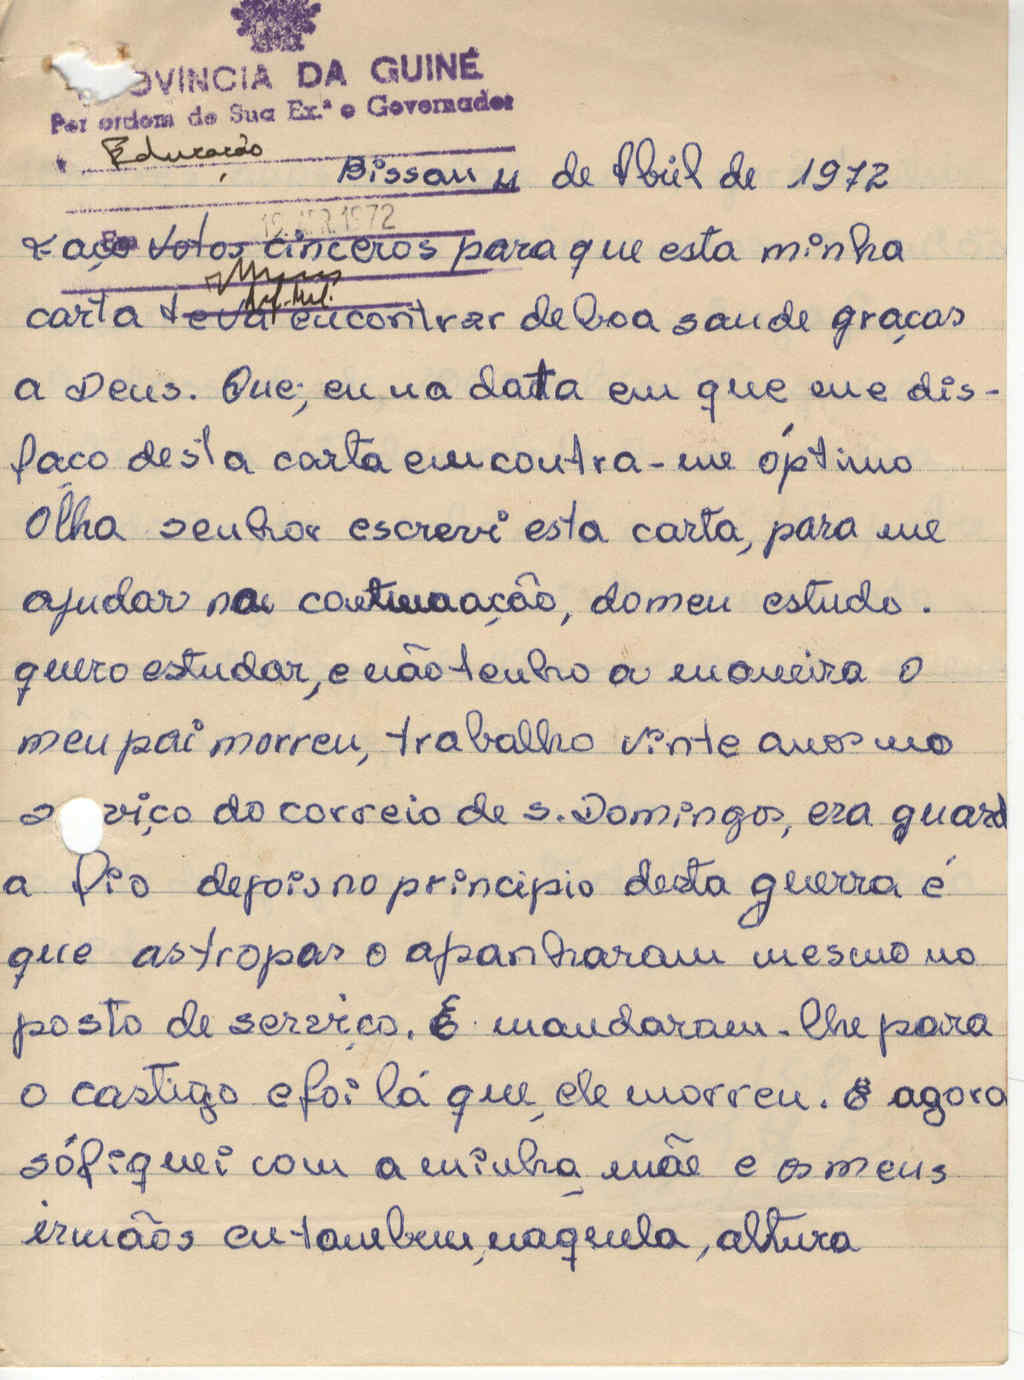 PROVÍNCIA DA GUINÉ
Por ordem de Sua Ex.ª o Governador
Educação
Bissau 11 de Abril de 1972
12 ABR. 1972
Em
Faço votos cinceros para que esta minha
carta teva encontrar de boa saude graças
a Deus. Que, eu na data em que me dis-
faço desta carta encontra-me óptimo
Olha senhor escrevi esta carta, para me
ajudar na continuação, domeu estudo.
quero estudar, e não tenho a maneira O
meu pai morreu, trabalho vinte anos no
serviço do correio de S. Domingos, era guard
a fio depois no principio desta guerra é
que as tropas o apanharam mesmo no
posto de serviço. E mandaram-lhe para
o castigo e foi lá que ele morreu. E agora
só fiquei com a minha mãe e os meus
irmãos eu tambem, naquela, altura